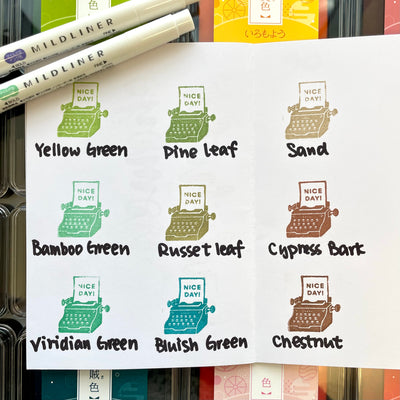 MILDLINER
MILDLINER
色
いろもよう
NICE DAY!
NICE DAY!
NICE DAY!
Yellow Green
Pine leaf
Sand
NICE DAY!
NICE DAY!
NICE DAY!
Bamboo Green
Russet leaf
Cypress Bark
NICE DAY!
NICE DAY!
NICE DAY!
Viridian Green
Bluish Green
Chestnut
色
色